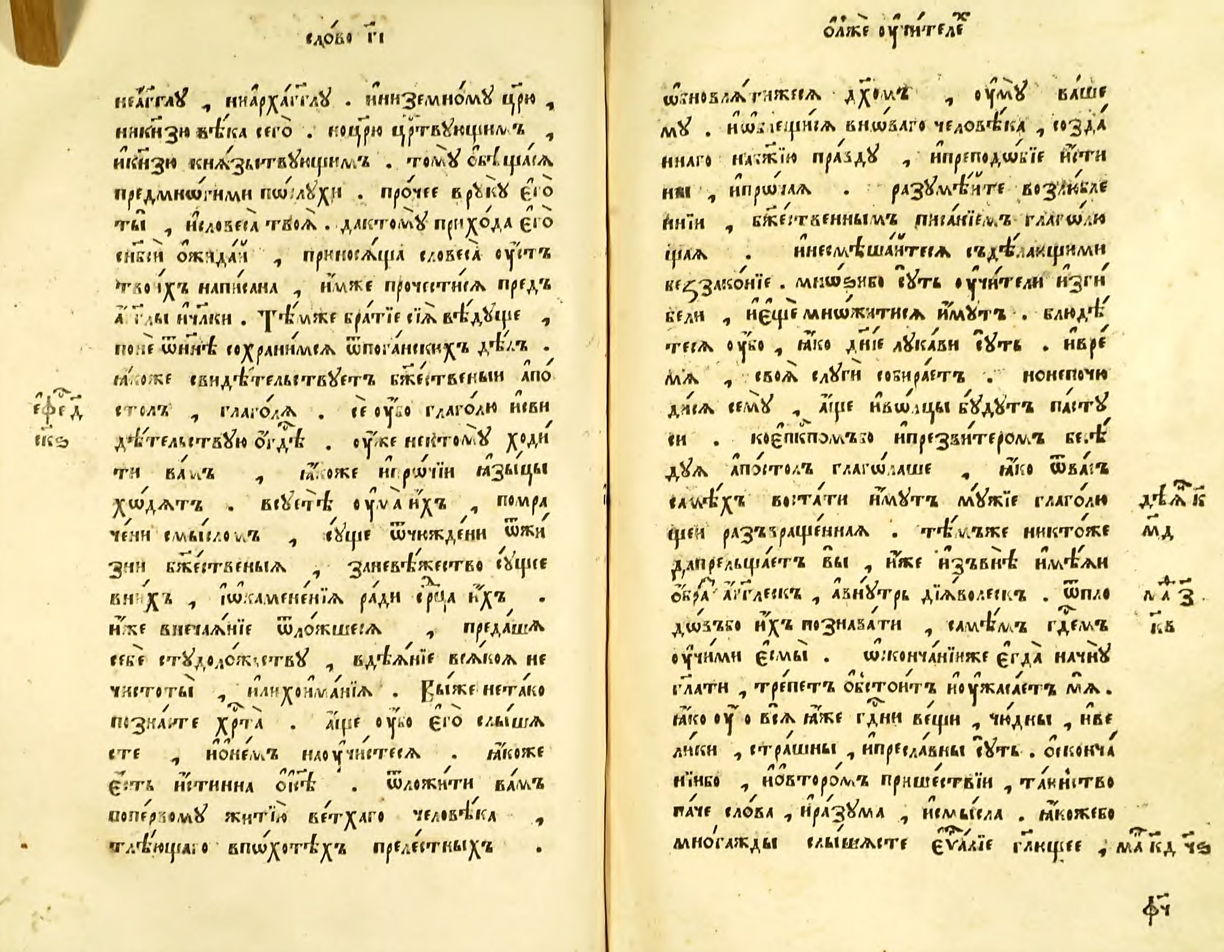 сло́во г҃і
неа́гг҃лу , ниарха́гг҃лу . ӥниземно́му цр҃ю ,
никн҃зю вѣ́ка сего̀ . коцр҃ю цр҃твующимъ ,
ӥкн҃зю кня́зьствующимъ . тому̀ ѻбѣща́ся
предмнѡ́гими пѡ́слухи . про́чее в руку̀ є҆го̀
ты̀ , ӥсловеса̀ твоя̀ . дактому̀ прихо́да є҆го̀
сн҃бсӥ ѻ҆жида́й , принося́ща словеса̀ оу҆стъ
твои́хъ написана , и҆́мже прочести́ся предъ
а҆́гг҃лы ӥчл҃ки . Тѣ́мже бра́тїе сїя̀ вѣ́дуще ,
понѐ ѿнн҃ѣ сохрани́мся ѿпога́нскихъ дѣ́лъ .
ꙗ҆́коже свидѣ́тельствуетъ бж҃е́ственыи апо́
столъ , глаго́ля . се оу҆́бо глаго́лю ӥсви
дѣ́тельствую ѻ҆гд҃ѣ . оу҆же нектому̀ ходи́
ти ва́мъ , ꙗ҆́коже ӥпрѡ́чїи ꙗ҆зы́цы
хѡ́дятъ . всуетѣ̀ оу҆ма̀ и҆́хъ , помра
че́ни смы́сломъ , су́ще ѿчюжде́ни ѿжи́
зни бж҃ественыя , заневѣ́жество су́щее
вни́хъ , їѡкамене́нїя ра́ди ср҃ца и҆́хъ .
и҆́же внеча́янїе ѿло́жшеся , преда́шя
себѐ студоло́жьству , вдѣя́нїе вся́коя не
чистоты̀ , ӥлихоима́нїя . Вы́же нета́ко
позна́сте хр҃та̀ . а҆́ще оу҆́бо є҆го̀ слы́шя
сте , ӥѻне́мъ наоучи́стеся . ꙗ҆́коже
є҆́сть и҆́стинна ѻі҃сѣ . ѿложи́ти ва́мъ
попе́рвому житїю̀ ве́тхаго человѣ́ка ,
тлѣ́ющаго впѡ́хотѣхъ преле́стныхъ .
є҆фе д҃
ск҃ѕ
ѻ҆лже оу҆чи́телех
ѡбновля́тижеся дх҃омъ , оу҆му̀ ва́ше
му . ӥѡблещи́ся внѡ́ваго человѣ́ка , созда́
ннаго набж҃їю пра́вду , ӥпреподѡ́бїе и҆́сти
ны , ӥпрѡ́чая . разумѣ́йте возлю́бле
нїи , бж҃е́ственнымъ писа́нїемъ глагѡ́лю
щая . ӥнесмѣша́йтеся съдѣ́лающими
беззако́нїе . мнѡ́ѕибо су́ть оу҆чи́тели ӥзги́
бели , ӥє҆щѐ мнѡ́житися и҆́мутъ . блюдѣ́
теся оу҆́бо , ꙗ҆́ко дн҃їе лука́ви су́ть . ӥвре́
мя , своя̀ слугѝ собира́етъ . нонепочю
ди́ся сему̀ , а҆́ще ӥѻвцы бу́дутъ па́сту
си . коєпк҃помъбо ӥпрезви́теромъ бесѣ́
дуя а҆по́столъ глагѡ́лаше , ꙗ҆́ко ѿва́съ
самѣ́хъ воста́ти и҆́мутъ му́жїе глаго́лю
щеи развраще́нная . тѣ́мъже никто́же
дапрельща́етъ вы , и҆́же ӥзъвнѣ̀ имѣ́яи
ѻ҆́браз а҆гг҃леск , авну́трь дїя́волеск . ѿпло
дѡ́въбо и҆́хъ познава́ти , самѣ́мъ гд҃емъ
оу҆чими є҆смы̀ . ѡ҆сконча́нїиже є҆гда̀ начну̀
гл҃ати , тре́петъ ѻбстои́тъ ӥоу҆жаса́етъ мя .
ꙗ҆́ко оу҆́бо вся̀ ꙗ҆́же гд҃ни ве́щи , чю́дны , ӥве
ли́ки , стра́шны , ӥпресла́вны су́ть . ѻсконча́
нїибо , ӥѻвторо́мъ прише́ствїи , та́инство
па́че сло́ва , ӥра́зума , ӥсмы́сла . ꙗ҆́кожебо
мно́гажды слы́шясте є҆ѵа҆́лїе гл҃ющее ,
дѣя́ к҃
м҃д
ма з҃
к҃в
ма к҃д ч҃ѕ
фч